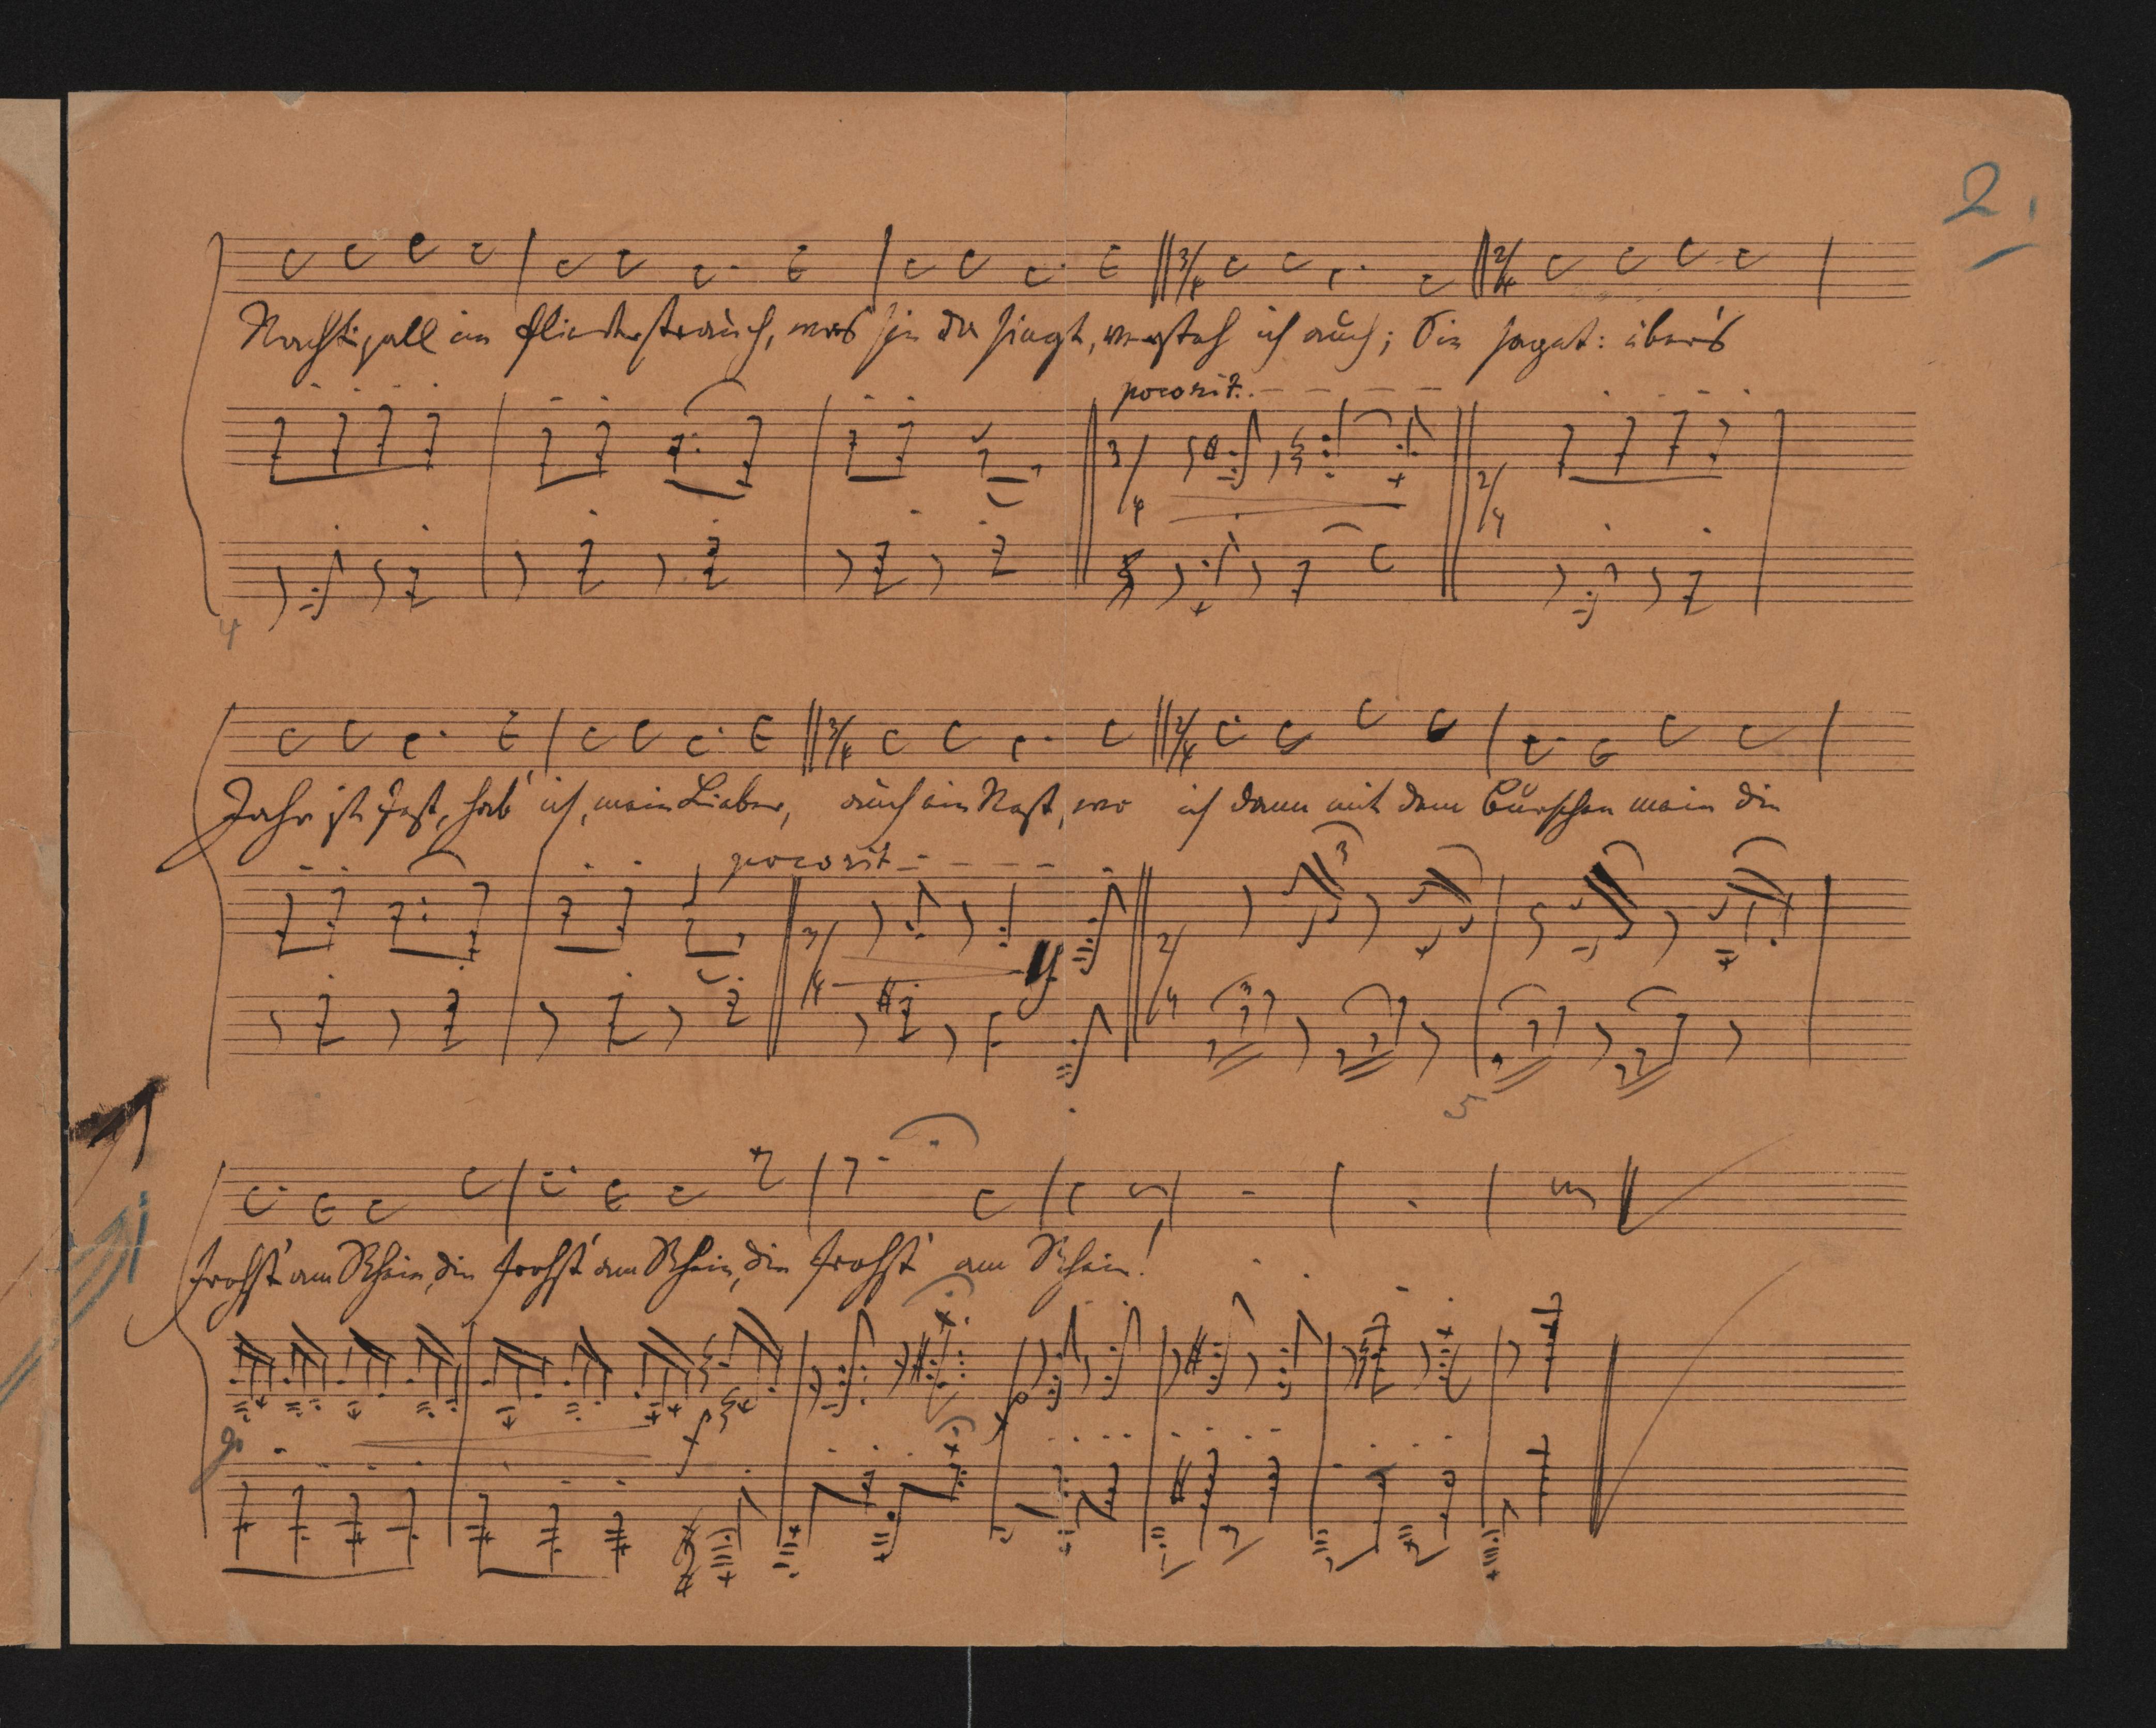 2.
3/4 2/4
Nachtigall im Fliederstrauch, was sie da singt, versteh ich auch; Sie saget: über's
poco rit.
3/4 2/4
4
3/4 2/4
Jahr ist Fest, hab' ich, mein Lieber, auch ein Nest, wo ich dann mit dem Burschen mein die
poco rit
3
3/4 2/4
3
5
frohst' am Rhein, die frohst' am Rhein, die frohst' am Rhein!
f
p